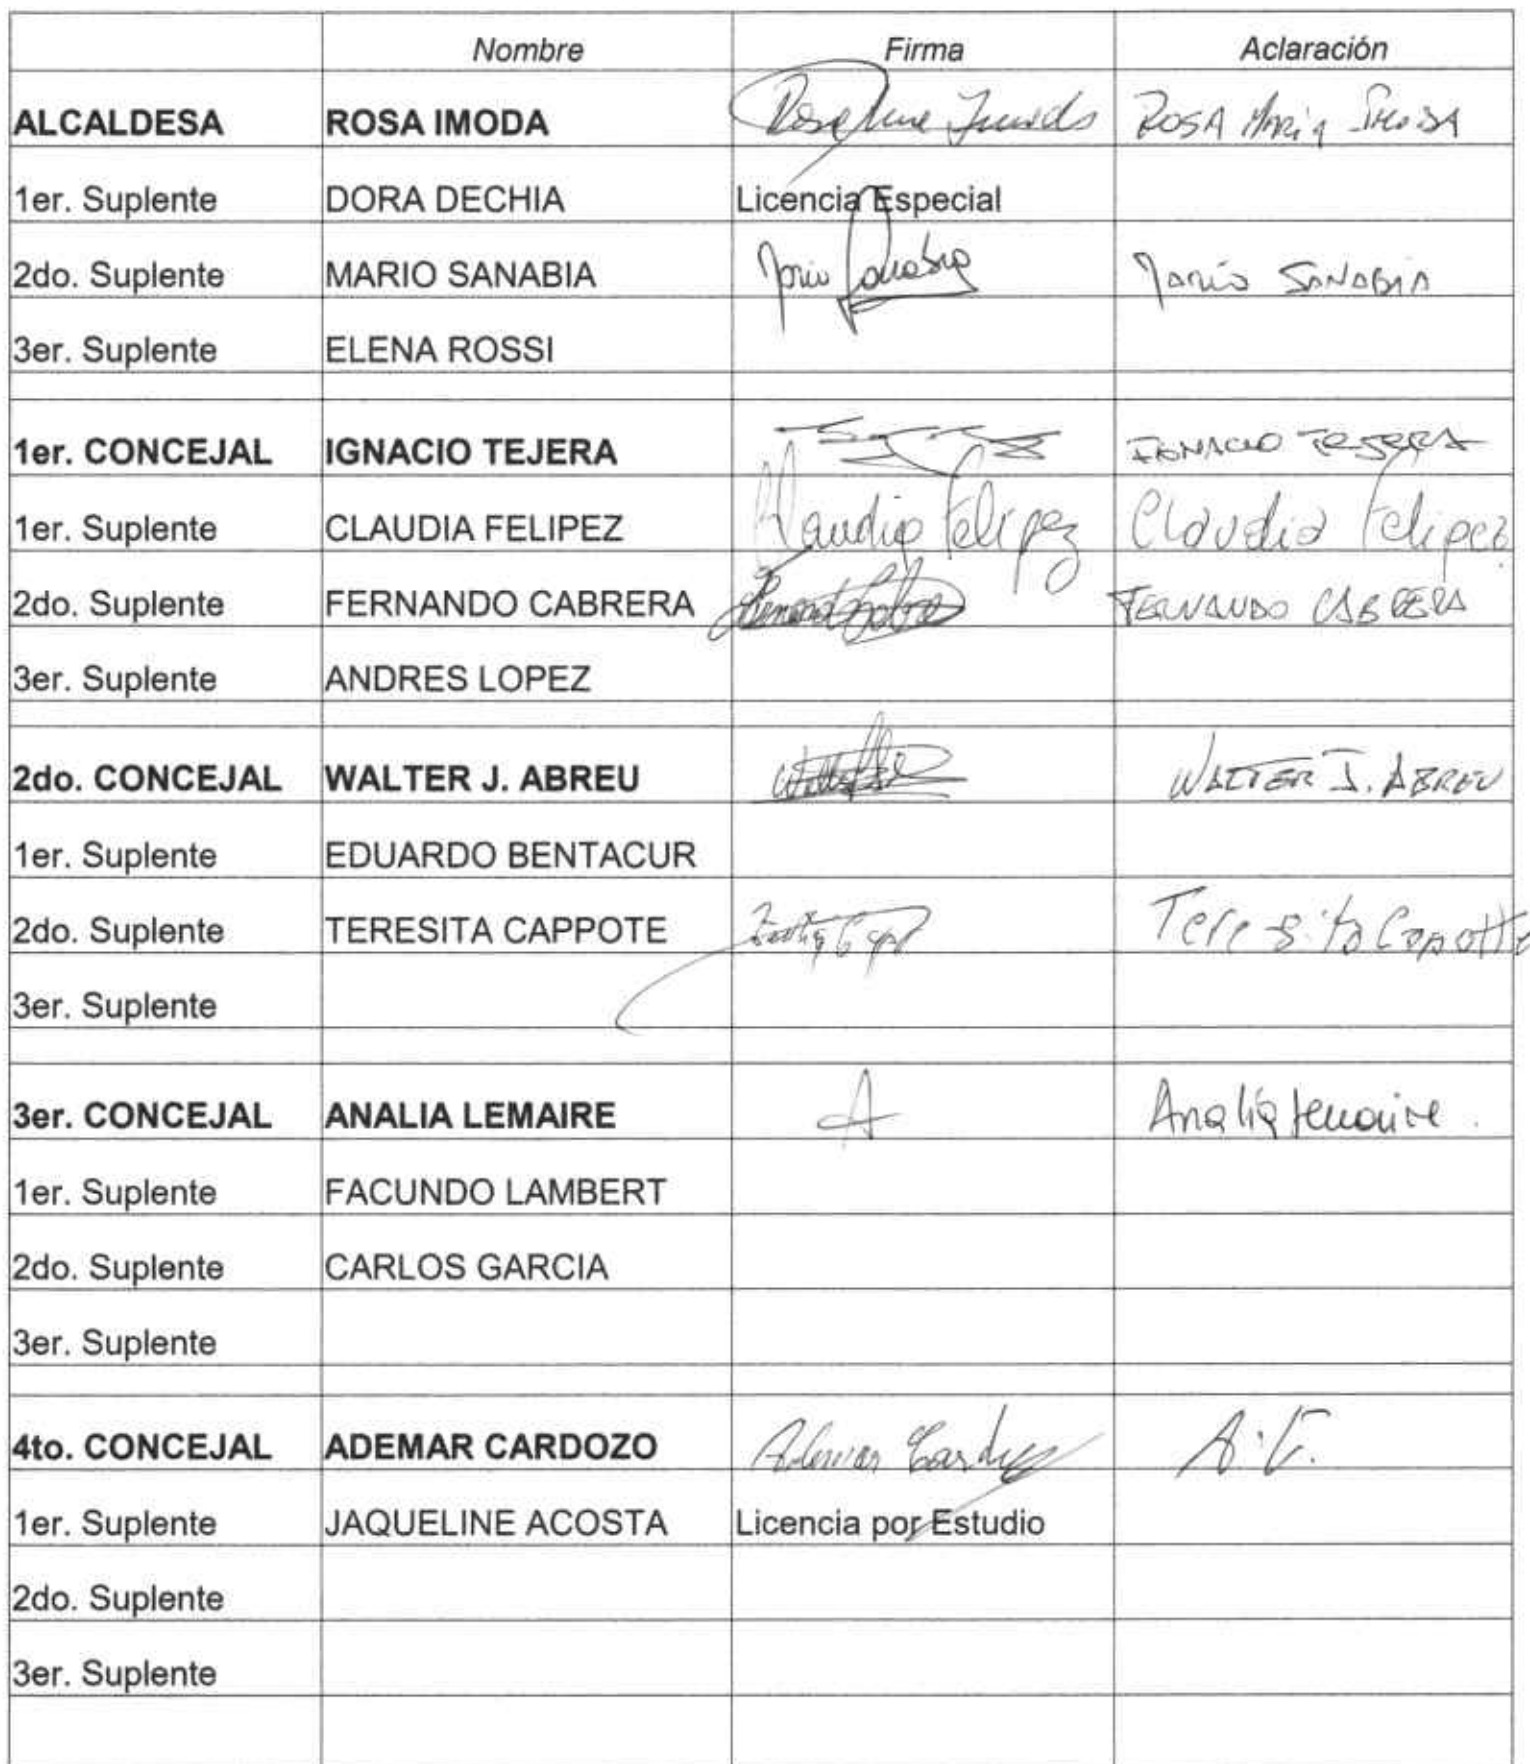 Nombre Firma Aclaración
ALCALDESA ROSA IMODA ROSA MARIA IMODA
1er. Suplente DORA DECHIA Licencia Especial
2do. Suplente MARIO SANABIA Mario Sanabia Mario SANABIA
3er. Suplente ELENA ROSSI
1er. CONCEJAL IGNACIO TEJERA IGNACIO TEJERA
1er. Suplente CLAUDIA FELIPEZ Claudia Felipez Claudia Felipez
2do. Suplente FERNANDO CABRERA FERNANDO CABRERA
3er. Suplente ANDRES LOPEZ
2do. CONCEJAL WALTER J. ABREU WALTER J. ABREU
1er. Suplente EDUARDO BENTACUR
2do. Suplente TERESITA CAPPOTE Teresita Capotte
3er. Suplente
3er. CONCEJAL ANALIA LEMAIRE A Analia Lemaire.
1er. Suplente FACUNDO LAMBERT
2do. Suplente CARLOS GARCIA
3er. Suplente
4to. CONCEJAL ADEMAR CARDOZO Ademar Cardozo A.C.
1er. Suplente JAQUELINE ACOSTA Licencia por Estudio
2do. Suplente
3er. Suplente